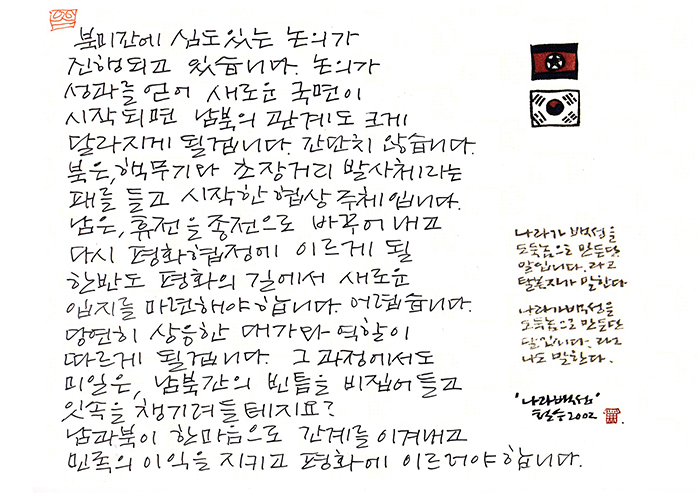 북미간에 심도있는 논의가
진행되고 있습니다. 논의가
성과를 얻어 새로운 국면이
시작되면 남북의 관계도 크게
달라지게 될겁니다. 간단치 않습니다.
북은, 핵무기와 초장거리 발사체라는
패를 들고 시작한 협상 주체입니다.
남은, 휴전을 종전으로 바꾸어 내고
다시 평화협정에 이르게 될
한반도 평화의 길에서 새로운
입지를 마련해야 합니다. 어렵습니다.
당연히 상응한 대가와 역할이
따르게 될겁니다. 그 과정에서도
미일은, 남북간의 빈틈을 비집어 들고
잇속을 챙기려들테지요?
남과북이 한마음으로 간계를 이겨내고
민족의 이익을 지키고 평화에 이르러야 합니다.
나라가 백성을
도둑놈으로 만든단
말입니다. 라고
탈북자가 말한다
나라가 백성을
도둑놈으로 만든단
말입니다. 라고
나도 말한다.
'나라백성'
철수 2002